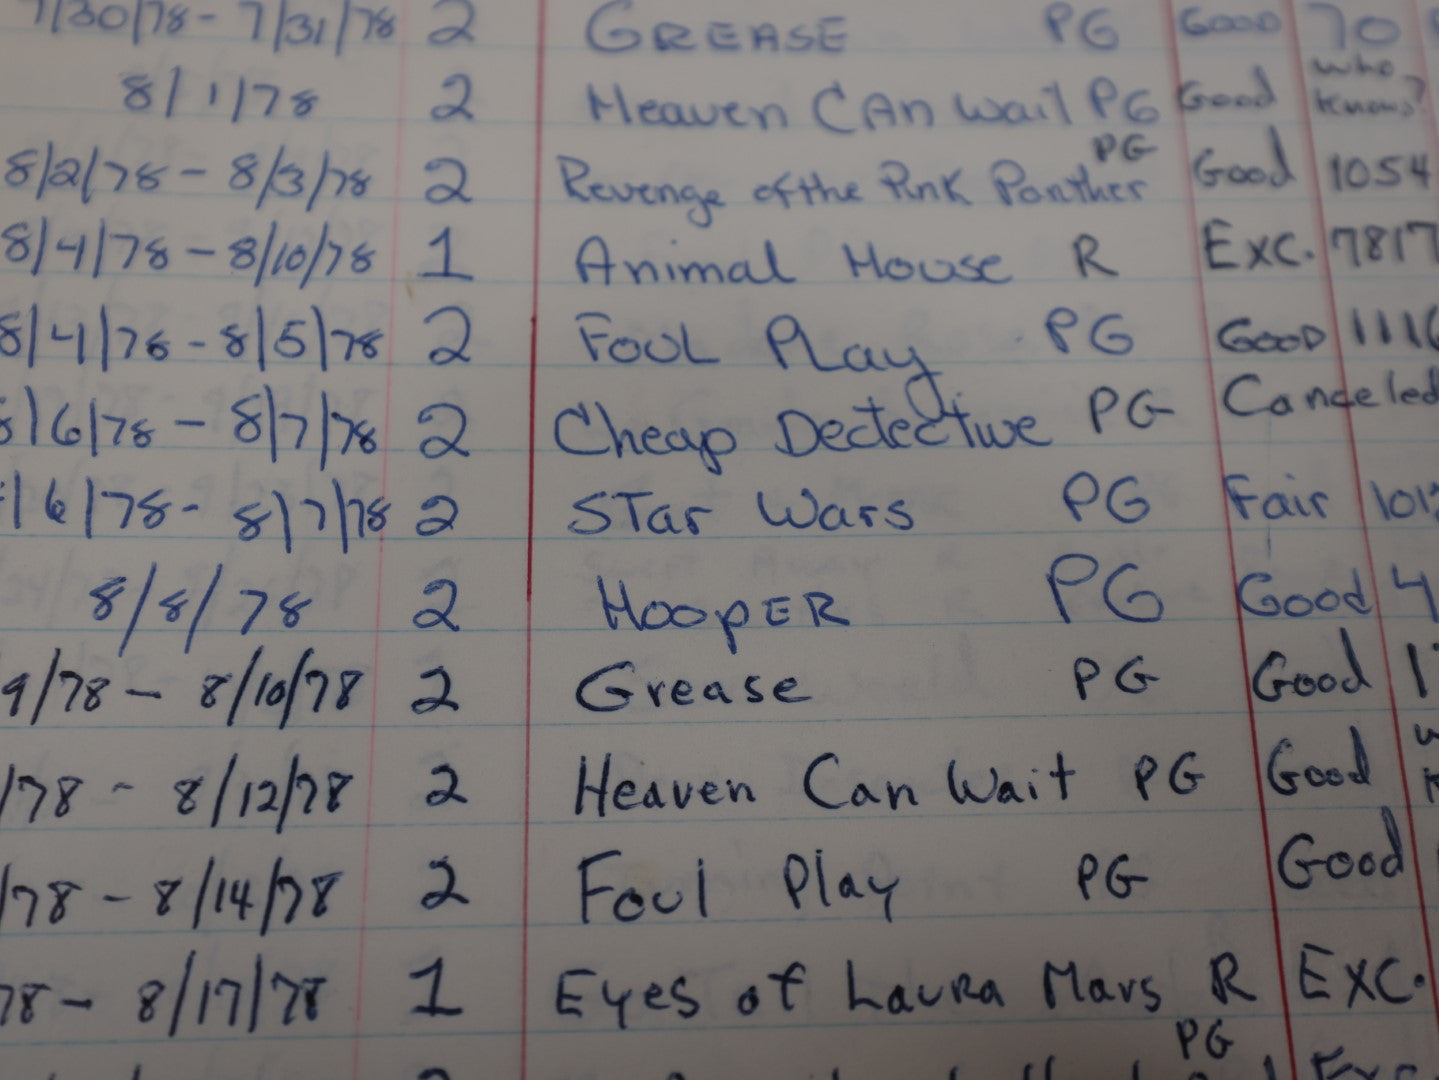 7/30/78 - 7/31/78 2 GREASE PG Good 70
8/1/78 2 Heaven CAn Wait PG Good who knows?
8/2/78 - 8/3/78 2 Revenge of the Pink Panther PG Good 1054
8/4/78 - 8/10/78 1 Animal House R Exc. 7817
8/4/78 - 8/5/78 2 Foul Play PG Good 1116
8/6/78 - 8/7/78 2 Cheap Dectective PG Canceled
8/6/78 - 8/7/78 2 STar Wars PG Fair 101
8/8/78 2 HOOPER PG Good 4
9/78 - 8/10/78 2 Grease PG Good 1
/78 - 8/12/78 2 Heaven Can Wait PG Good
/78 - 8/14/78 2 Foul Play PG Good
78 - 8/17/78 1 Eyes of Laura Mars R EXC.
PG